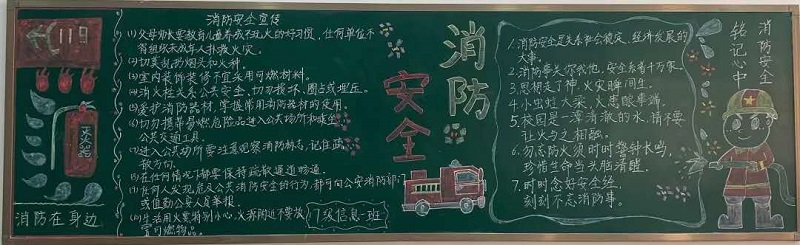 119
灭火器
消防在身边
消防安全宣传
(1)父母师长要教育儿童养成不玩火的好习惯，任何单位不
得组织未成年人扑救火灾。
(2)切莫乱扔烟头和火种。
(3)室内装饰装修不宜采用可燃材料。
(4)消火栓关系公共安全，切勿损坏、圈占或埋压。
(5)爱护消防器材，掌握常用消防器材的使用。
(6)切勿携带易燃危险品进入公共场所和乘坐
公共交通工具。
(7)进入公共场所要注意观察消防标志，记住疏
散方向。
(8)在任何情况下都要保持疏散通道畅通。
(9)任何人发现危及公共消防安全的行为，都可向公安消防部门
或值勤公安人员举报。
(10)生活用火要特别小心，火源附近不要放
置可燃物品。
消防
安全
17级信息一班
1.消防安全是关系社会稳定、经济发展的
大事。
2.消防事关你我他，安全系着千万家。
3.思想走了神，火灾瞬间生。
4.小虫蛀大梁，火患眼莫瞒。
5.校园是一潭清澈的水，请不要
让火与之相融。
6.勿忘防火须时时警钟长鸣，
珍惜生命当头脑清醒。
7.时时念好安全经，
刻刻不忘消防事。
消防安全
铭记心中